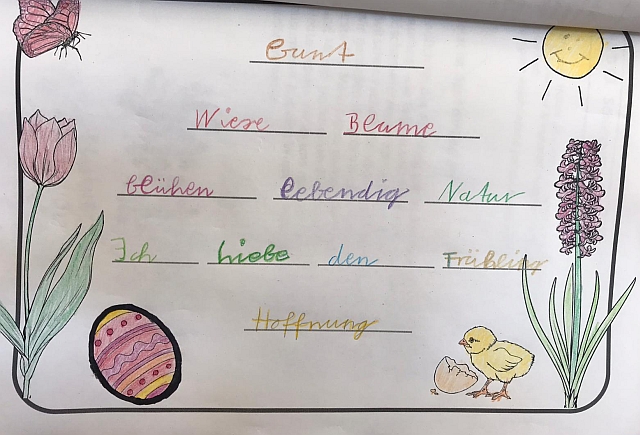 Bunt
Wiese Blume
blühen lebendig Natur
Ich liebe den Frühling
Hoffnung